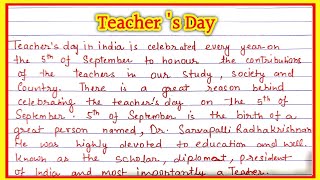 Teacher's Day
Teacher's day in india is celebrated every year on
the 5th of September to honour the contributions
of the teachers in our study, society and
Country. There is a great reason behind
celebrating the teacher's day on the 5th of
September. 5th of September is the birth of a
great person named, Dr. Sarvapalli Radhakrishnan
He was highly devoted to education and well
known as the scholar, diplomat, president
of India and most importantly a Teacher.